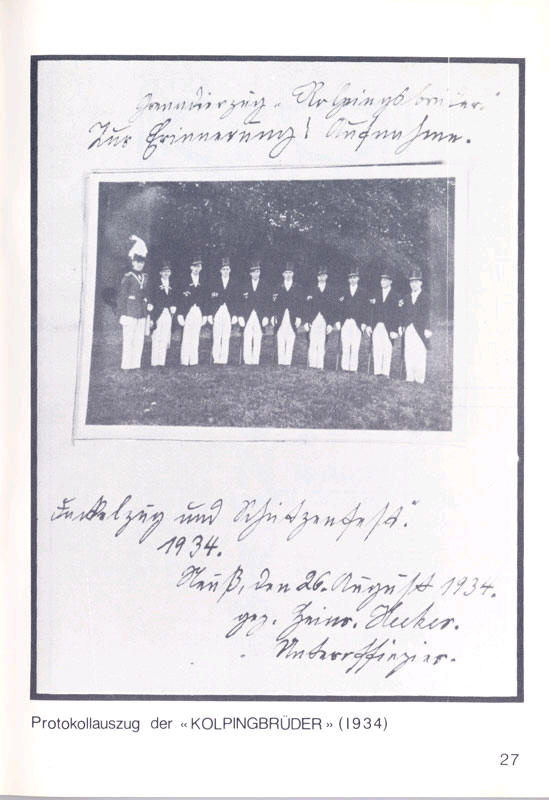 Grenadierzug „Kolpingsbrüder."
Zur Erinnerung! Aufnahme.
Fackelzug und Schützenfest."
1934.
Neuß, den 26. August 1934.
gez. Heinr. Hecker.
Unteroffizier.
Protokollauszug der «KOLPINGBRÜDER» (1934)
27